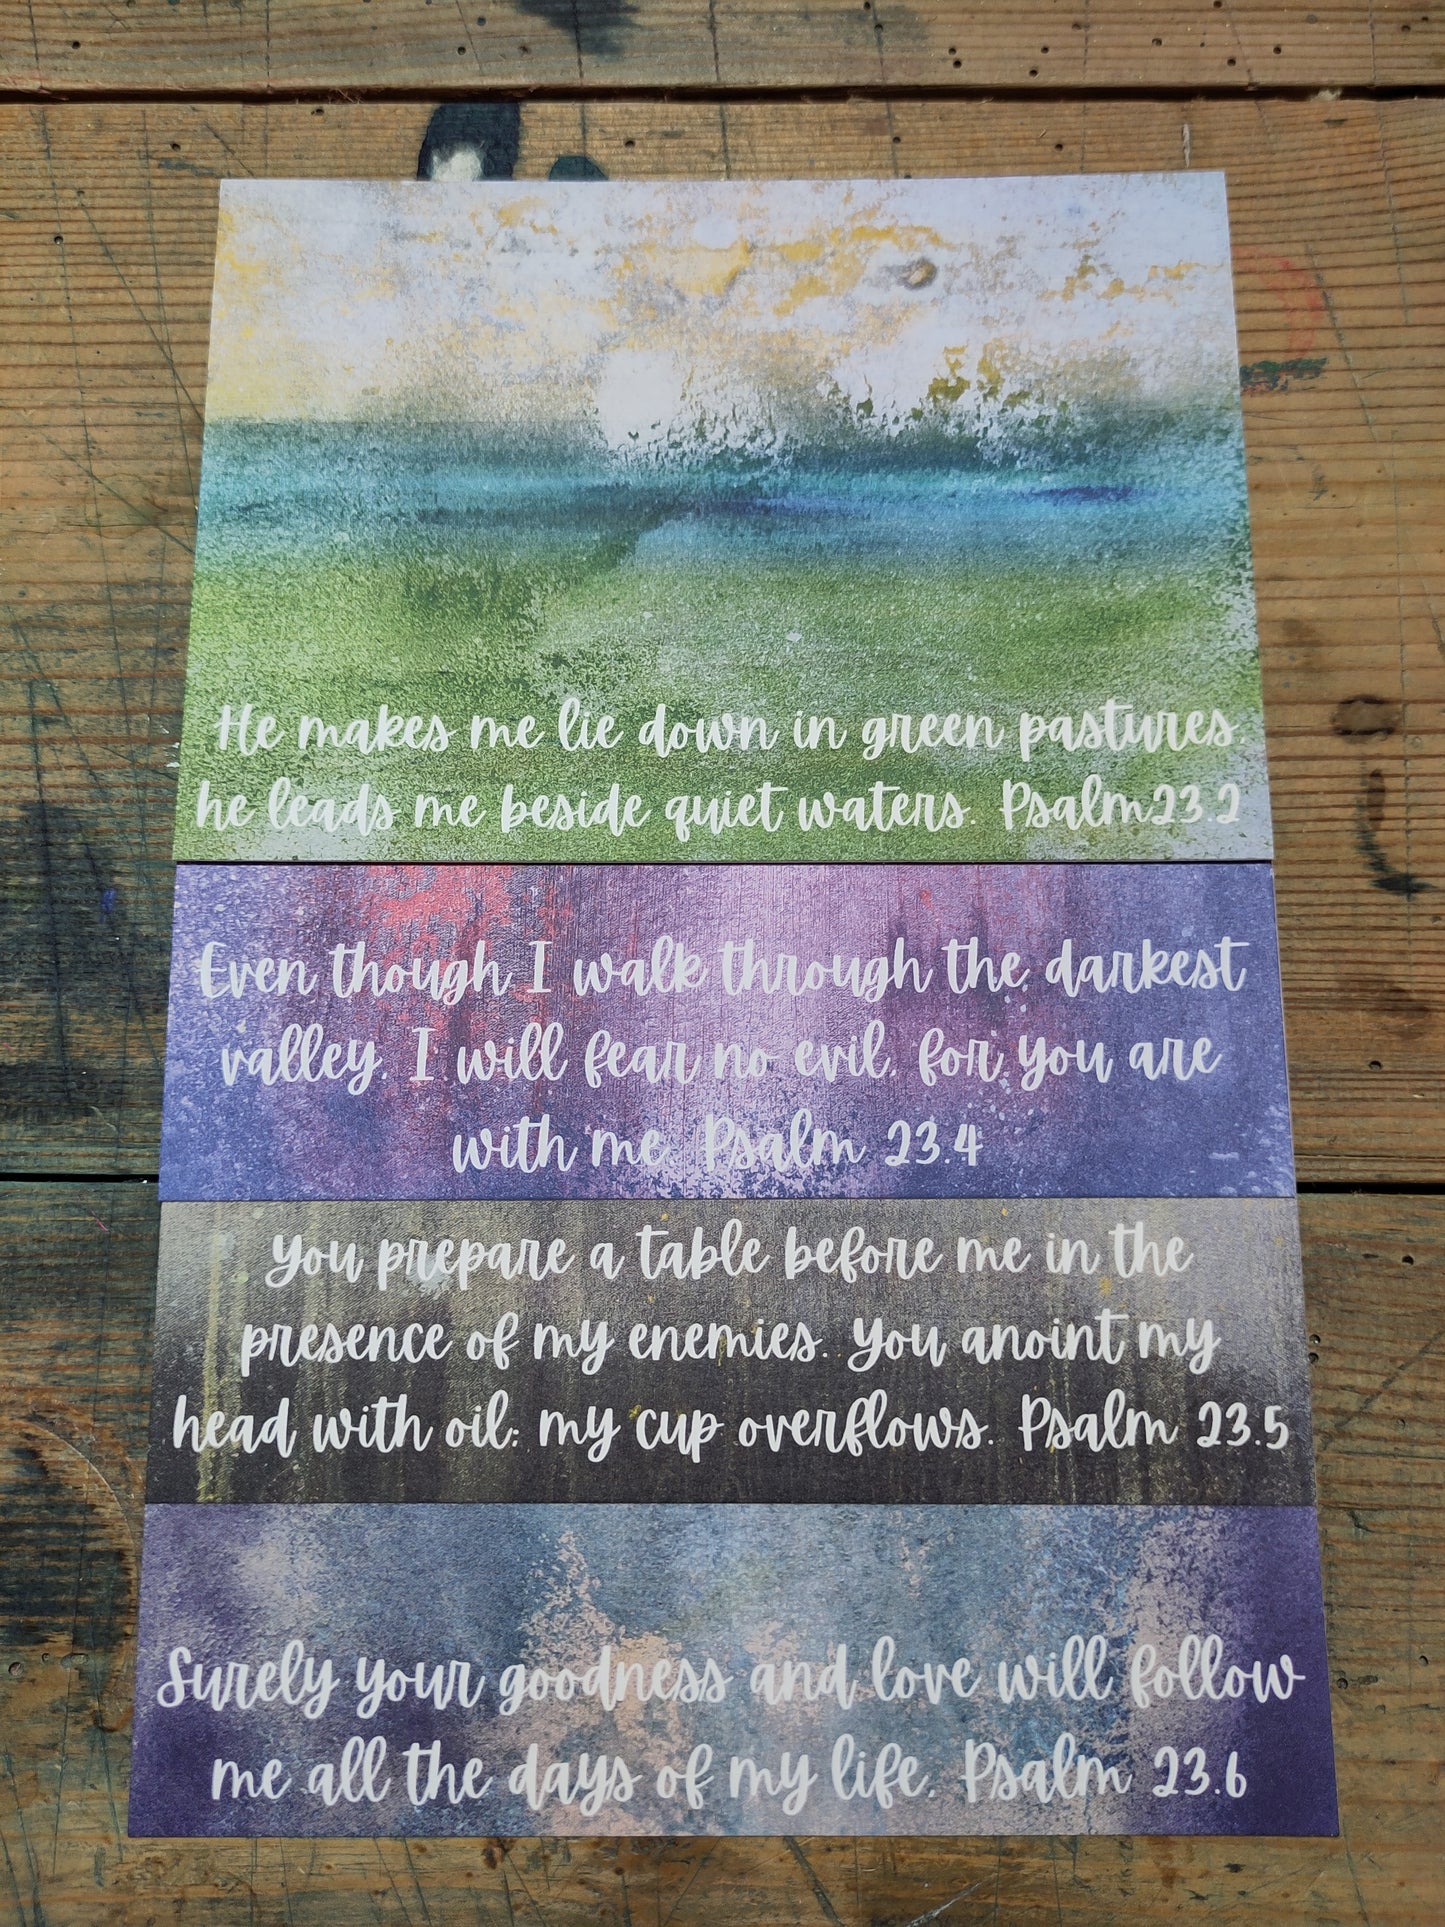 He makes me lie down in green pastures,
he leads me beside quiet waters. Psalm23.2
Even though I walk through the darkest
valley, I will fear no evil, for you are
with me. Psalm 23.4
You prepare a table before me in the
presence of my enemies. You anoint my
head with oil; my cup overflows. Psalm 23.5
Surely your goodness and love will follow
me all the days of my life, Psalm 23.6